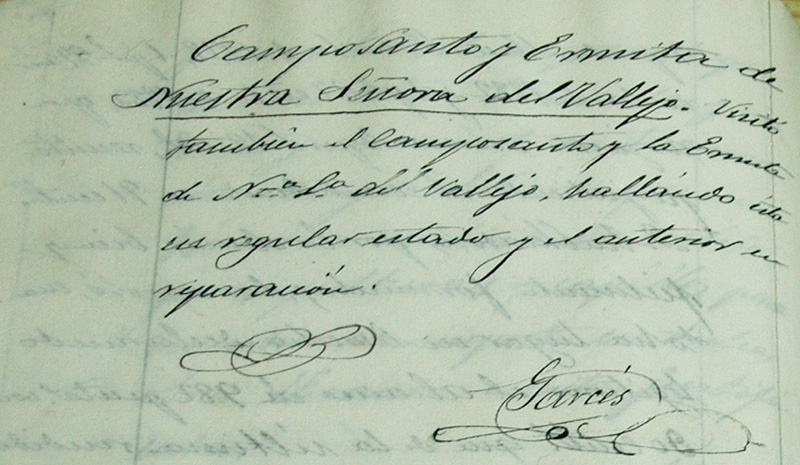 Camposanto y Ermita de
Nuestra Señora del Vallejo. Visitó
también el camposanto y la Ermita
de Nª. Sª. del Vallejo, hallándo ésta
en regular estado y el anterior en
reparación.
Garcés